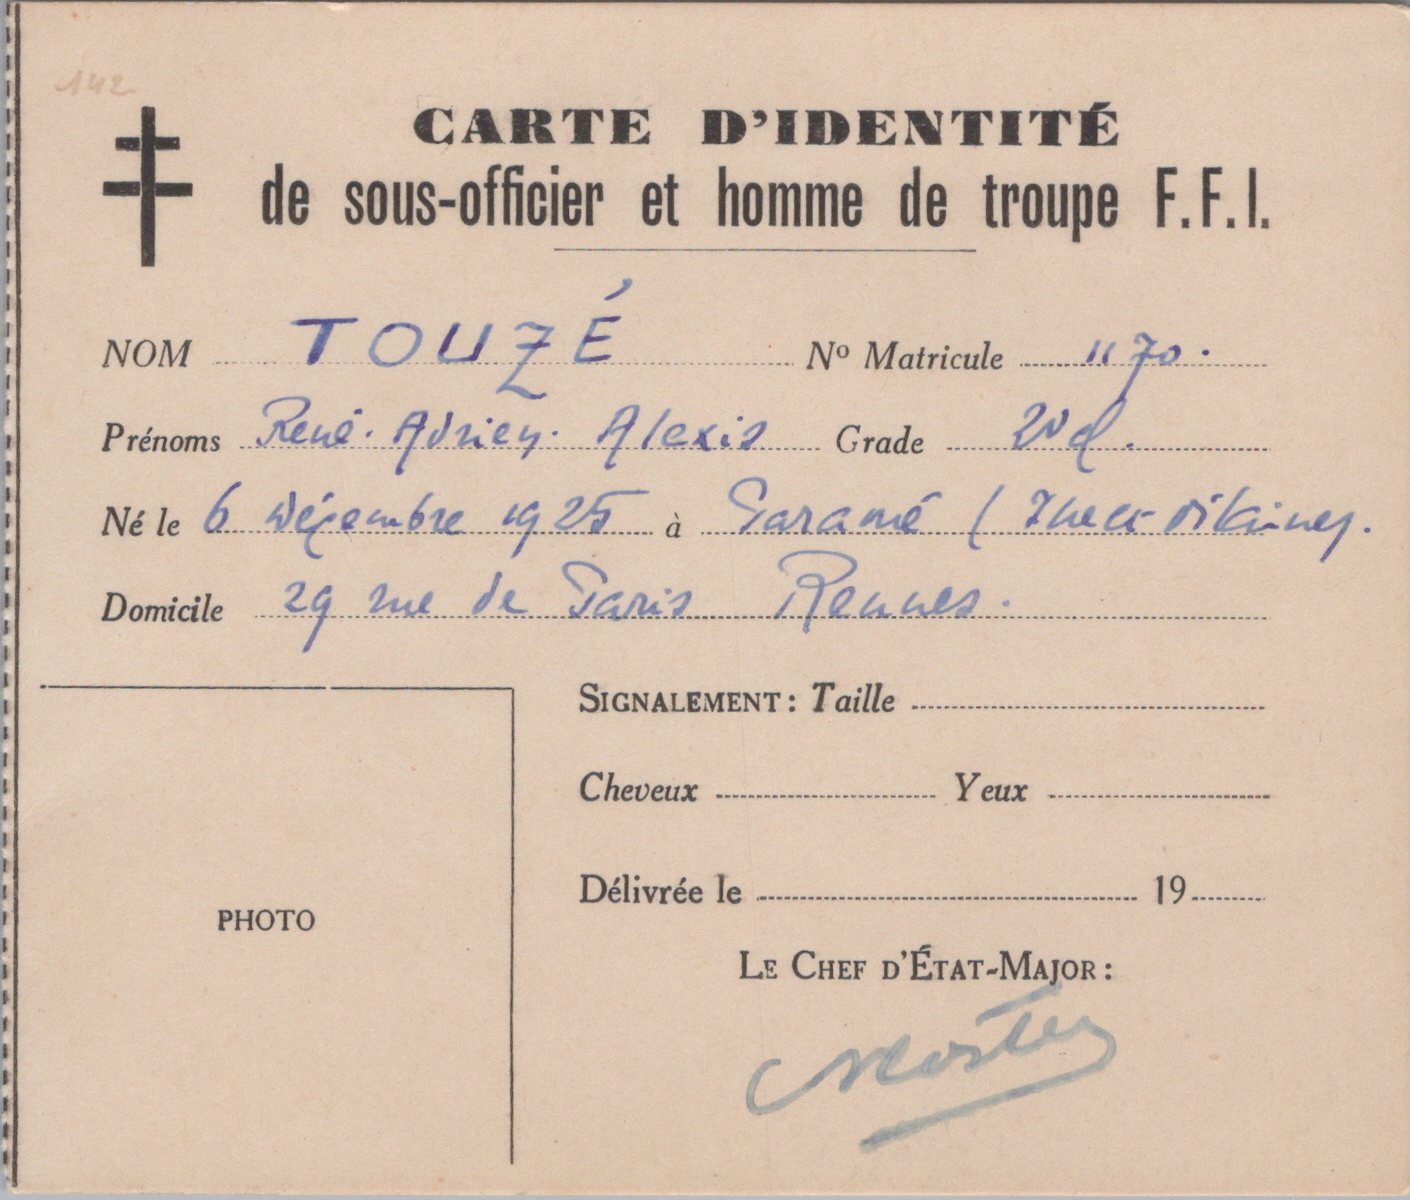 142
CARTE D'IDENTITÉ
de sous-officier et homme de troupe F.F.I.
NOM TOUZÉ Nº Matricule 1170.
Prénoms René. Adrien. Alexis Grade
Né le 6 Décembre 1925 à Paramé (Ille et Vilaine).
Domicile 29 rue de Paris Rennes.
SIGNALEMENT : Taille
Cheveux Yeux
Délivrée le 19
PHOTO
LE CHEF D'ÉTAT-MAJOR :